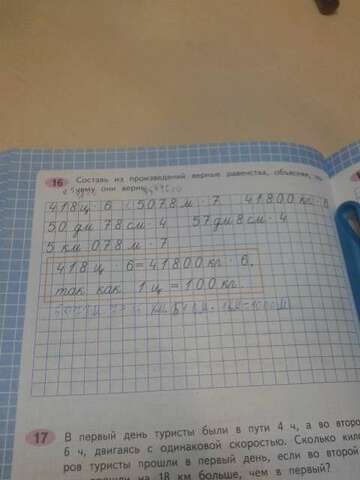 16 Составь из произведений верные равенства, объясняя,
они верны
418 ц · 6 5078 м · 7 41800 кг · 6
50 дм 78 см · 4 57 дм 8 см · 4
5 км 078 м · 7
418 ц · 6 = 41800 кг · 6,
так как 1 ц = 100 кг.
17 В первый день туристы были в пути 4 ч, а во второ
6 ч, двигаясь с одинаковой скоростью. Сколько кило
ров туристы прошли в первый день, если во второй
прошли на 18 км больше, чем в первый?